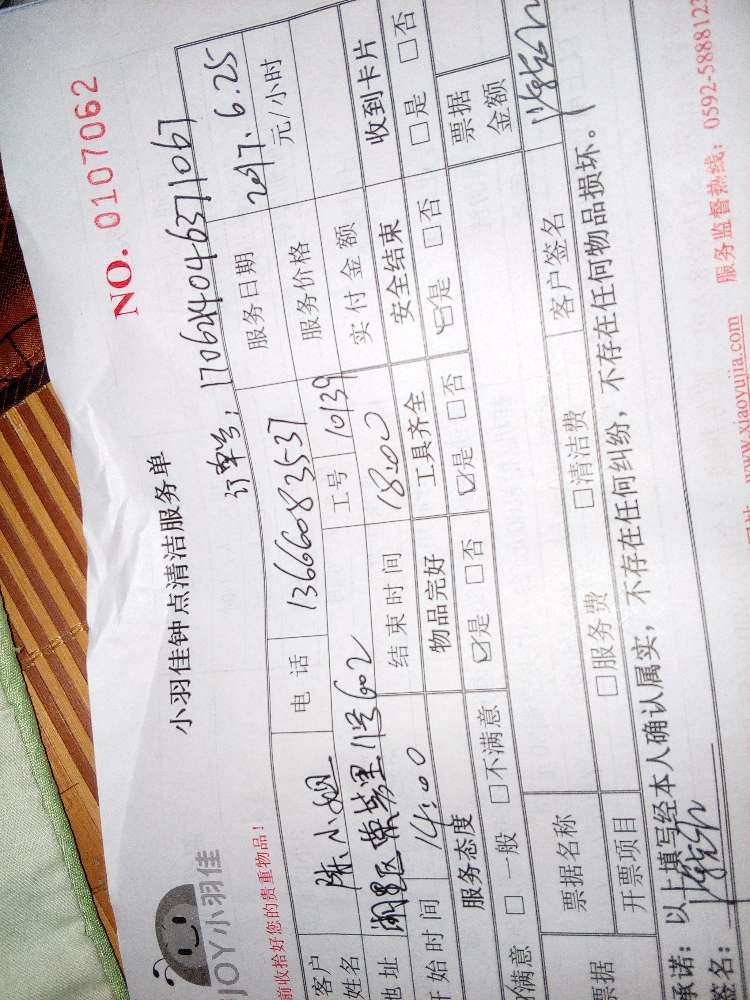 JOY小羽佳
小羽佳钟点清洁服务单
NO. 0107062
前收拾好您的贵重物品!
订单号: 17062404046371067
客户姓名 陈小姐 电话 13666083537 服务日期 2017.6.25
地址 湖里区 里1号602 工号 10139 服务价格 元/小时
开始时间 14:00 结束时间 18:00 实付金额
服务态度 物品完好 工具齐全 安全结束 收到卡片
满意 □一般 □不满意 ☑是 □否 ☑是 □否 ☑是 □否 □是 □否
票据 票据名称 票据金额
开票项目 □服务费 □清洁费 客户签名
承诺: 以上填写经本人确认属实, 不存在任何纠纷, 不存在任何物品损坏。
签名:
www.xiaoyujia.com 服务监督热线: 0592-5888812